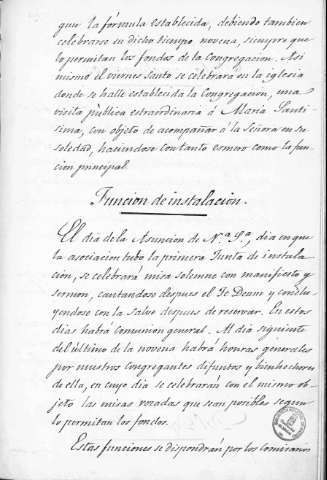 gun la fórmula establecida, debiendo tambien
celebrarse en dicho tiempo novena, siempre que
lo permitan los fondos de la Congregacion. Asi
mismo el viernes Santo se celebrará en la iglesia
donde se halle establecida la Congregacion, una
visita pública estraordinaria á Maria Santi-
sima, con objeto de acompañar á la Señora en su
soledad, haciendose con tanto esmero como la fun-
cion principal.
Funcion de instalacion.
El dia de la Asuncion de N.ª S.ª, dia en que
la asociacion tubo la primera Junta de instala-
cion, se celebrará misa solemne con manifiesto y
sermon, cantandose despues el Te Deum y conclu-
yendose con la salve despues de reservar. En estos
dias habrá Comunion general. Al dia siguiente
del último de la novena habrá honras generales
por nuestros congregantes difuntos y bienhechores
de ella, en cuyo dia se celebrarán con el mismo ob-
jeto las misas rezadas que sean posibles segun
lo permitan los fondos.
Estas funciones se dispondrán por los Comisarios